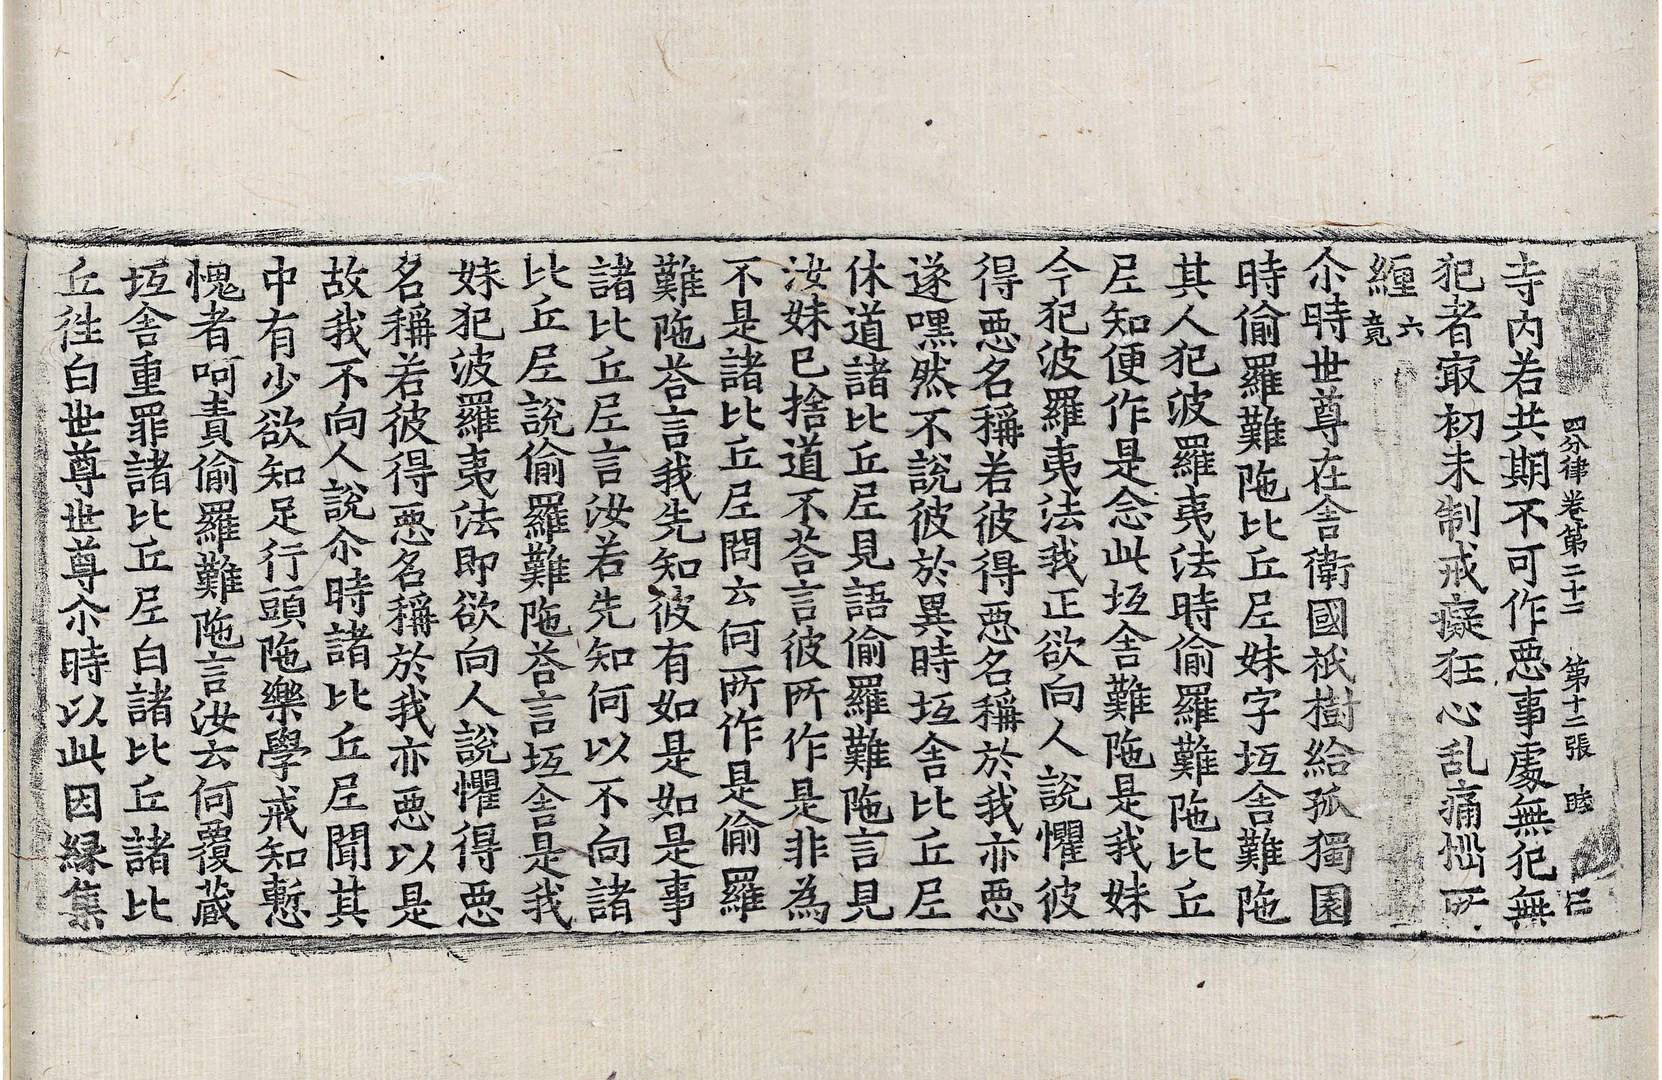 四分律卷第二十二 第十二張 睦
寺内若共期不可作惡事處無犯無
犯者㝡初未制戒癡狂心乱痛惱所
纏六竟
尒時世尊在舍衛國祇樹給孤獨園
時偷羅難陁比丘尼妹字坻舍難陁
其人犯波羅夷法時偷羅難陁比丘
尼知便作是念此坻舍難陁是我妹
今犯波羅夷法我正欲向人說懼彼
得惡名稱若彼得惡名稱於我亦惡
遂嘿然不說彼於異時坻舍比丘尼
休道諸比丘尼見語偷羅難陁言見
汝妹已捨道不荅言彼所作是非為
不是諸比丘尼問云何所作是偷羅
難陁荅言我先知彼有如是如是事
諸比丘尼言汝若先知何以不向諸
比丘尼說偷羅難陁荅言坻舍是我
妹犯波羅夷法即欲向人說懼得惡
名稱若彼得惡名稱於我亦惡以是
故我不向人說尒時諸比丘尼聞其
中有少欲知足行頭陁樂學戒知慙
愧者呵責偷羅難陁言汝云何覆蔵
坻舍重罪諸比丘尼白諸比丘諸比
丘徃白世尊世尊尒時以此因縁集